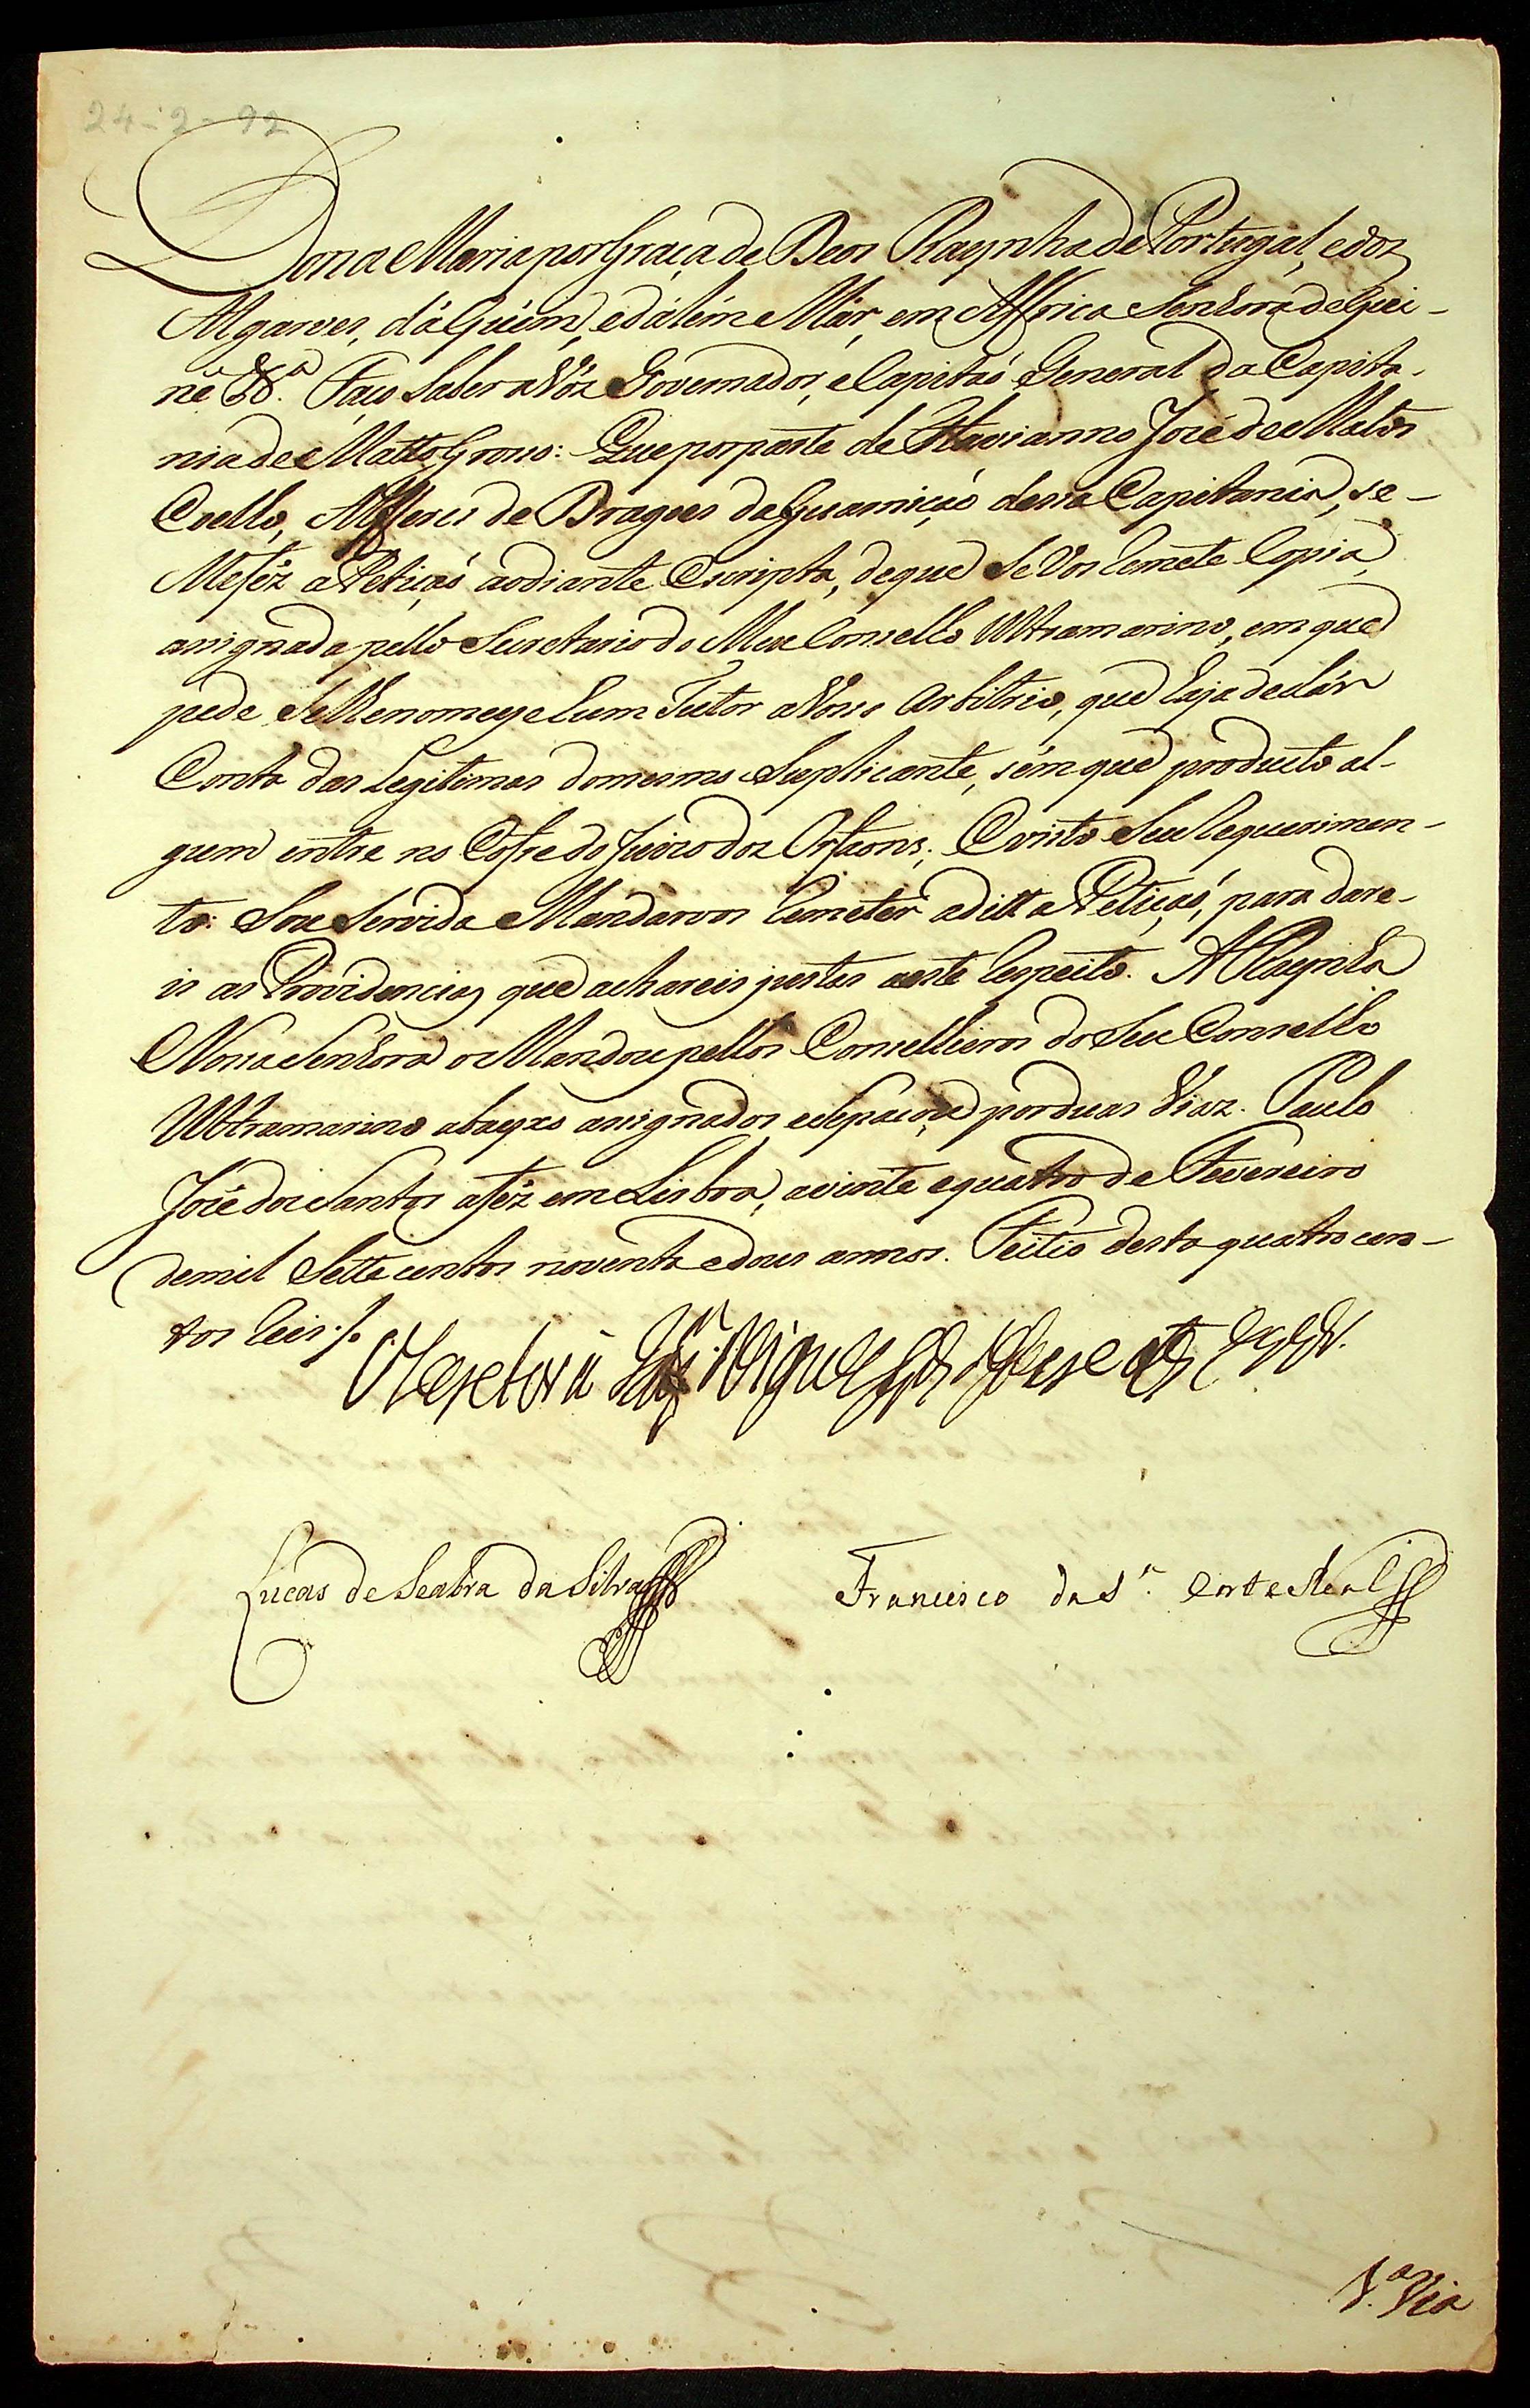 24-2-92
Dona Maria por Graça de Deos Raynha de Portugal, e dos
Algarves, d'áQuem, e dálém Már, em Affrica Senhora de Gui-
né &ª. Faço saber a Vós Governador, e Capitaó General da Capita-
nia de Matto Grosso: Que por parte de Flavianno José de Mattos
Coelho, Alferes de Dragoes da Guarniçaó dessa Capitania, se
Me féz a Petiçaó ao diante Escripta, de que se Vos Remete Copia,
assignada pello Secretario do Meu Conselho Ultramarino, em que
pede se lhe nomeye hum Tutor a Vosso Arbitrio, que haja de dár
Conta das Legitimas do mesmo Suplicante, sem que producto al-
gum entre no Cofre do Juizo dos Orfaons; E visto seu Requerimen-
to: Sou Servida Mandarvos Remeter a ditta Petiçaó, para dare-
is as Providencias que achareis justas a este Respeito. A Raynha
Nossa Senhora o Mandou pellos Conselheiros do Seu Conselho
Ultramarino abayxo assignados, e se passou por duas Vias. Paulo
José dos Santos a féz em Lisboa, a vinte e quatro de Fevereiro
de mil Sette centos noventa e dous annos. Feitio desta quatro cen-
tos Reis./.
Lucas de Seabra da Silva Francisco da Sª. Corte Real
1.ª Via